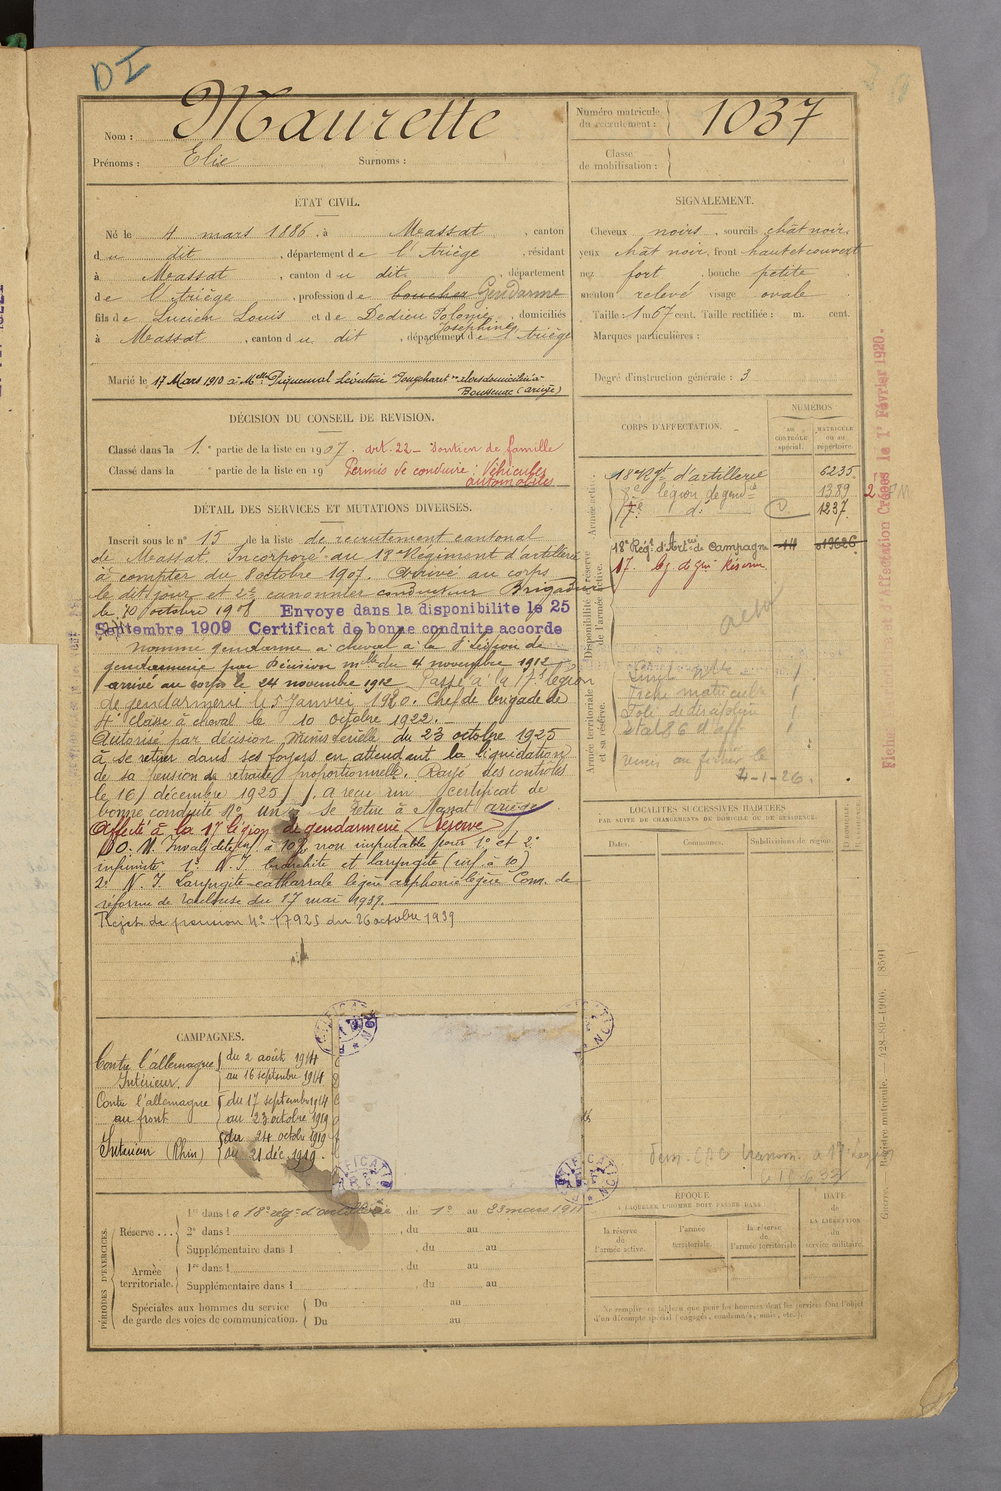 DI
Nom : Maurette
Prénoms : Elie Surnoms :
Numéro matricule du recrutement : 1037
Classe de mobilisation :
ÉTAT CIVIL.
Né le 4 mars 1886, à Massat, canton
du dit, département de l'Ariège, résidant
à Massat, canton du dit, département
de l'Ariège, profession de boucher Gendarme
fils de Lucien Louis et de Dedieu Polonie Josephine, domiciliés
à Massat, canton du dit, département de l'Ariège
Marié le 17 Mars 1910 à Mlle Piquemal Léontine
Boussenac (Ariège)
SIGNALEMENT.
Cheveux noirs, sourcils chât noir,
yeux chât noir, front haut et couvert
nez fort, bouche petite
menton relevé visage ovale
Taille : 1 m 67 cent. Taille rectifiée : m. cent.
Marques particulières :
Degré d'instruction générale : 3
DÉCISION DU CONSEIL DE REVISION.
Classé dans la 1e partie de la liste en 1907. art. 22 - Soutien de famille
Classé dans la e partie de la liste en 19 Permis de conduire : Véhicules
automobiles
DÉTAIL DES SERVICES ET MUTATIONS DIVERSES.
Inscrit sous le n° 15 de la liste de recrutement cantonal
de Massat. Incorporé au 18e Régiment d'artillerie
à compter du 8 octobre 1907. Arrivé au corps
le dit jour et 2e canonnier conducteur Brigadier
le 10 octobre 1908 Envoye dans la disponibilite le 25
Septembre 1909 Certificat de bonne conduite accorde
nommé gendarme à cheval à la légion de
gendarmerie par Décision mlle du 4 novembre 1912
arrivé au corps le 24 novembre 1912. Passé à la 17e légion
de gendarmerie le 5 Janvier 1920. Chef de brigade de
4e classe à cheval le 10 octobre 1922.
Autorisé par décision ministérielle du 23 octobre 1925
à se retirer dans ses foyers en attendant la liquidation
de sa pension de retraite proportionnelle. Rayé des contrôles
le 16 décembre 1925. A reçu un certificat de
bonne conduite N° un. Se retire à Massat Ariège
Affecté à la 17e légion de gendarmerie (Réserve)
non imputable pour 1° et 2°
infirmité 1° N. I. bronchite et laryngite (inf. à 10)
2° N. I. Laryngite catharrale légère aphonie légère Com. de
réforme de Toulouse du 17 mai 1939.
Rejet de pension N° 17925 du 26 octobre 1939
CORPS D'AFFECTATION.
NUMÉROS
AU CONTRÔLE spécial.
MATRICULE ou au répertoire.
Armée active.
18e Rgt d'artillerie 6235
8e légion de gend. 1389
17e d° 1237
Disponibilité et réserve de l'armée active.
18e Régt d'Artrie de Campagne
17e Lg de gie Réserve
Armée territoriale et sa réserve.
Fiche matricule
Etat 86 d'aff.
4-1-26.
Fiche et d'Affectation Créées le 1er Février 1920.
LOCALITÉS SUCCESSIVES HABITÉES
PAR SUITE DE CHANGEMENTS DE DOMICILE OU DE RÉSIDENCE.
Dates. Communes. Subdivisions de région.
CAMPAGNES.
Contre l'allemagne du 2 août 1914
Intérieur. au 16 septembre 1914
Contre l'allemagne du 17 septembre 1914
au front au 23 octobre 1919
Intérieur (Rhin) du 24 octobre 1919
au 21 déc. 1919
PÉRIODES D'EXERCICES.
Réserve.... 1re dans le 18e rég. d'artillerie du 1er au 23 mars 1911
2e dans l , du au
Supplémentaire dans l , du au
Armée territoriale. 1re dans l , du au
Supplémentaire dans l , du au
Spéciales aux hommes du service
de garde des voies de communication. Du au
Du au
ÉPOQUE
À LAQUELLE L'HOMME DOIT PASSER DANS
la réserve de l'armée active. l'armée territoriale. la réserve de l'armée territoriale
DATE de LA LIBÉRATION du service militaire.
Ne remplir ce tableau que pour les hommes dont les services font l'objet
d'un décompte spécial (engagés, condamnés, omis, etc.)
Guerre. Registre matricule. — 428-89-1906. [8591]